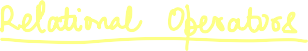 Relational Operators